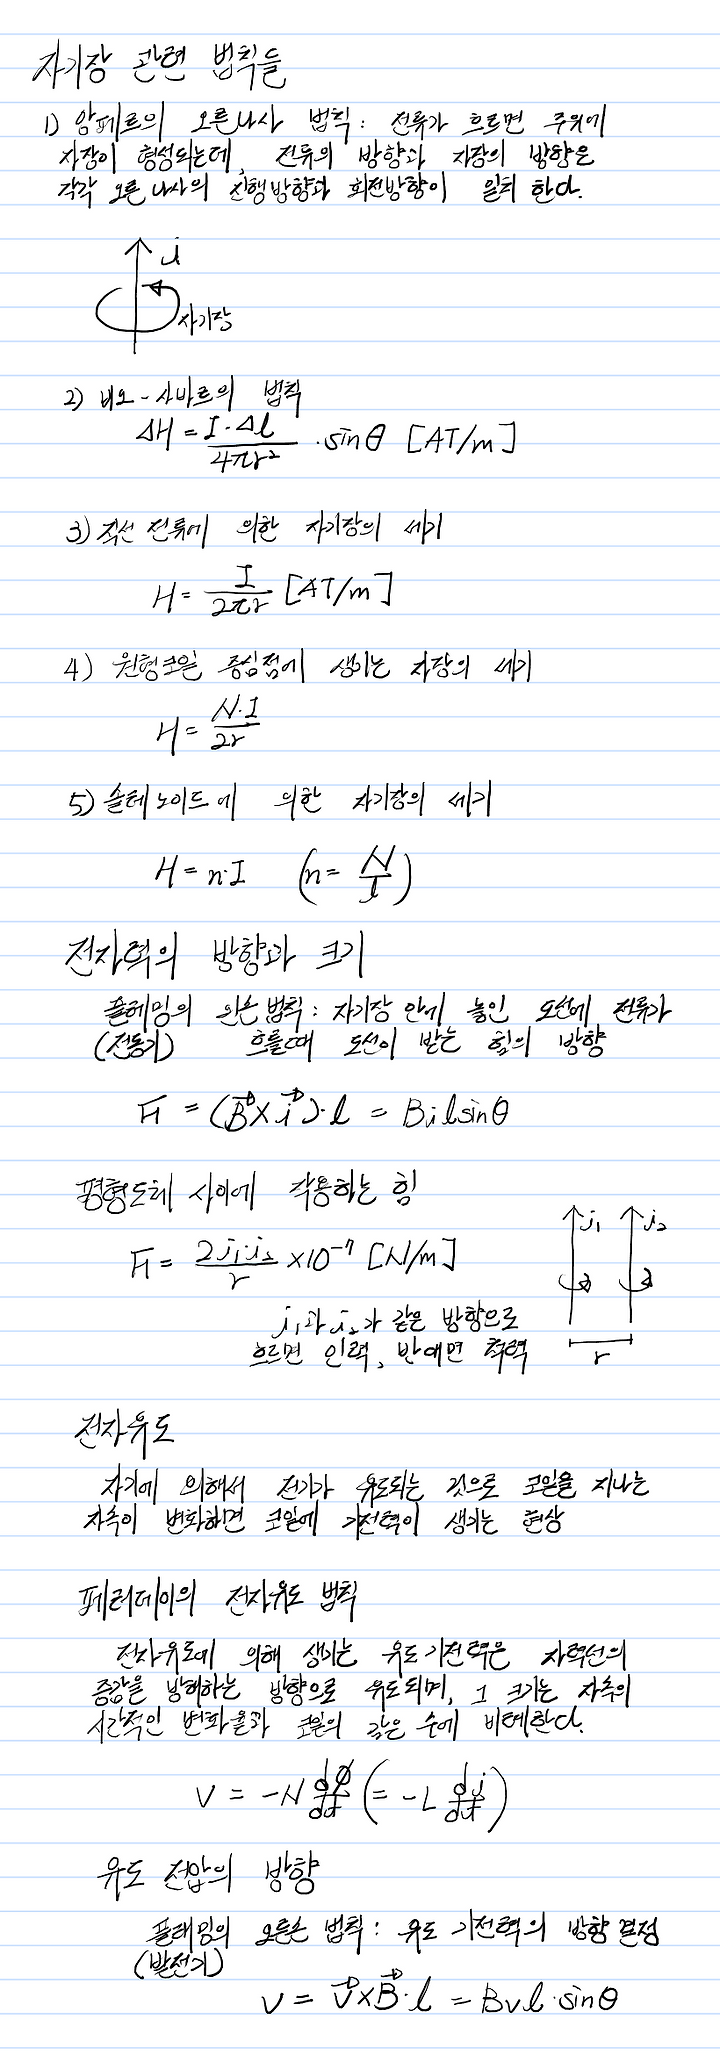 자기장 관련 법칙들
1) 암페르의 오른나사 법칙 : 전류가 흐르면 주위에
자장이 형성되는데, 전류의 방향과 자장의 방향은
각각 오른나사의 진행방향과 회전방향이 일치 한다.
i
자기장
2) 비오-사바르의 법칙
ΔH = I·Δl / 4πr² · sinθ [AT/m]
3) 직선 전류에 의한 자기장의 세기
H = I / 2πr [AT/m]
4) 원형코일 중심점에 생기는 자장의 세기
H = N·I / 2r
5) 솔테노이드에 의한 자기장의 세기
H = n·I (n = N/l)
전자력의 방향과 크기
플레밍의 왼손법칙 : 자기장 안에 놓인 도선에 전류가
(전동기) 흐를때 도선이 받는 힘의 방향
F = (B⃗ × i⃗)·l = Bilsinθ
평형도체 사이에 작용하는 힘
F = 2i₁·i₂ / r ×10⁻⁷ [N/m]
i₁ i₂
i₁과 i₂가 같은 방향으로
흐르면 인력, 반대면 척력
r
전자유도
자기에 의해서 전기가 유도되는 것으로 코일을 지나는
자속이 변화하면 코일에 기전력이 생기는 현상
페러데이의 전자유도 법칙
전자유도에 의해 생기는 유도기전력은 자력선의
증감을 방해하는 방향으로 유도되며, 그 크기는 자속의
시간적인 변화율과 코일의 감은 수에 비례한다.
V = -N dφ/dt (= -L di/dt)
유도 전압의 방향
플레밍의 오른손 법칙 : 유도 기전력의 방향 결정
(발전기)
V = v⃗×B⃗·l = Bvl·sinθ